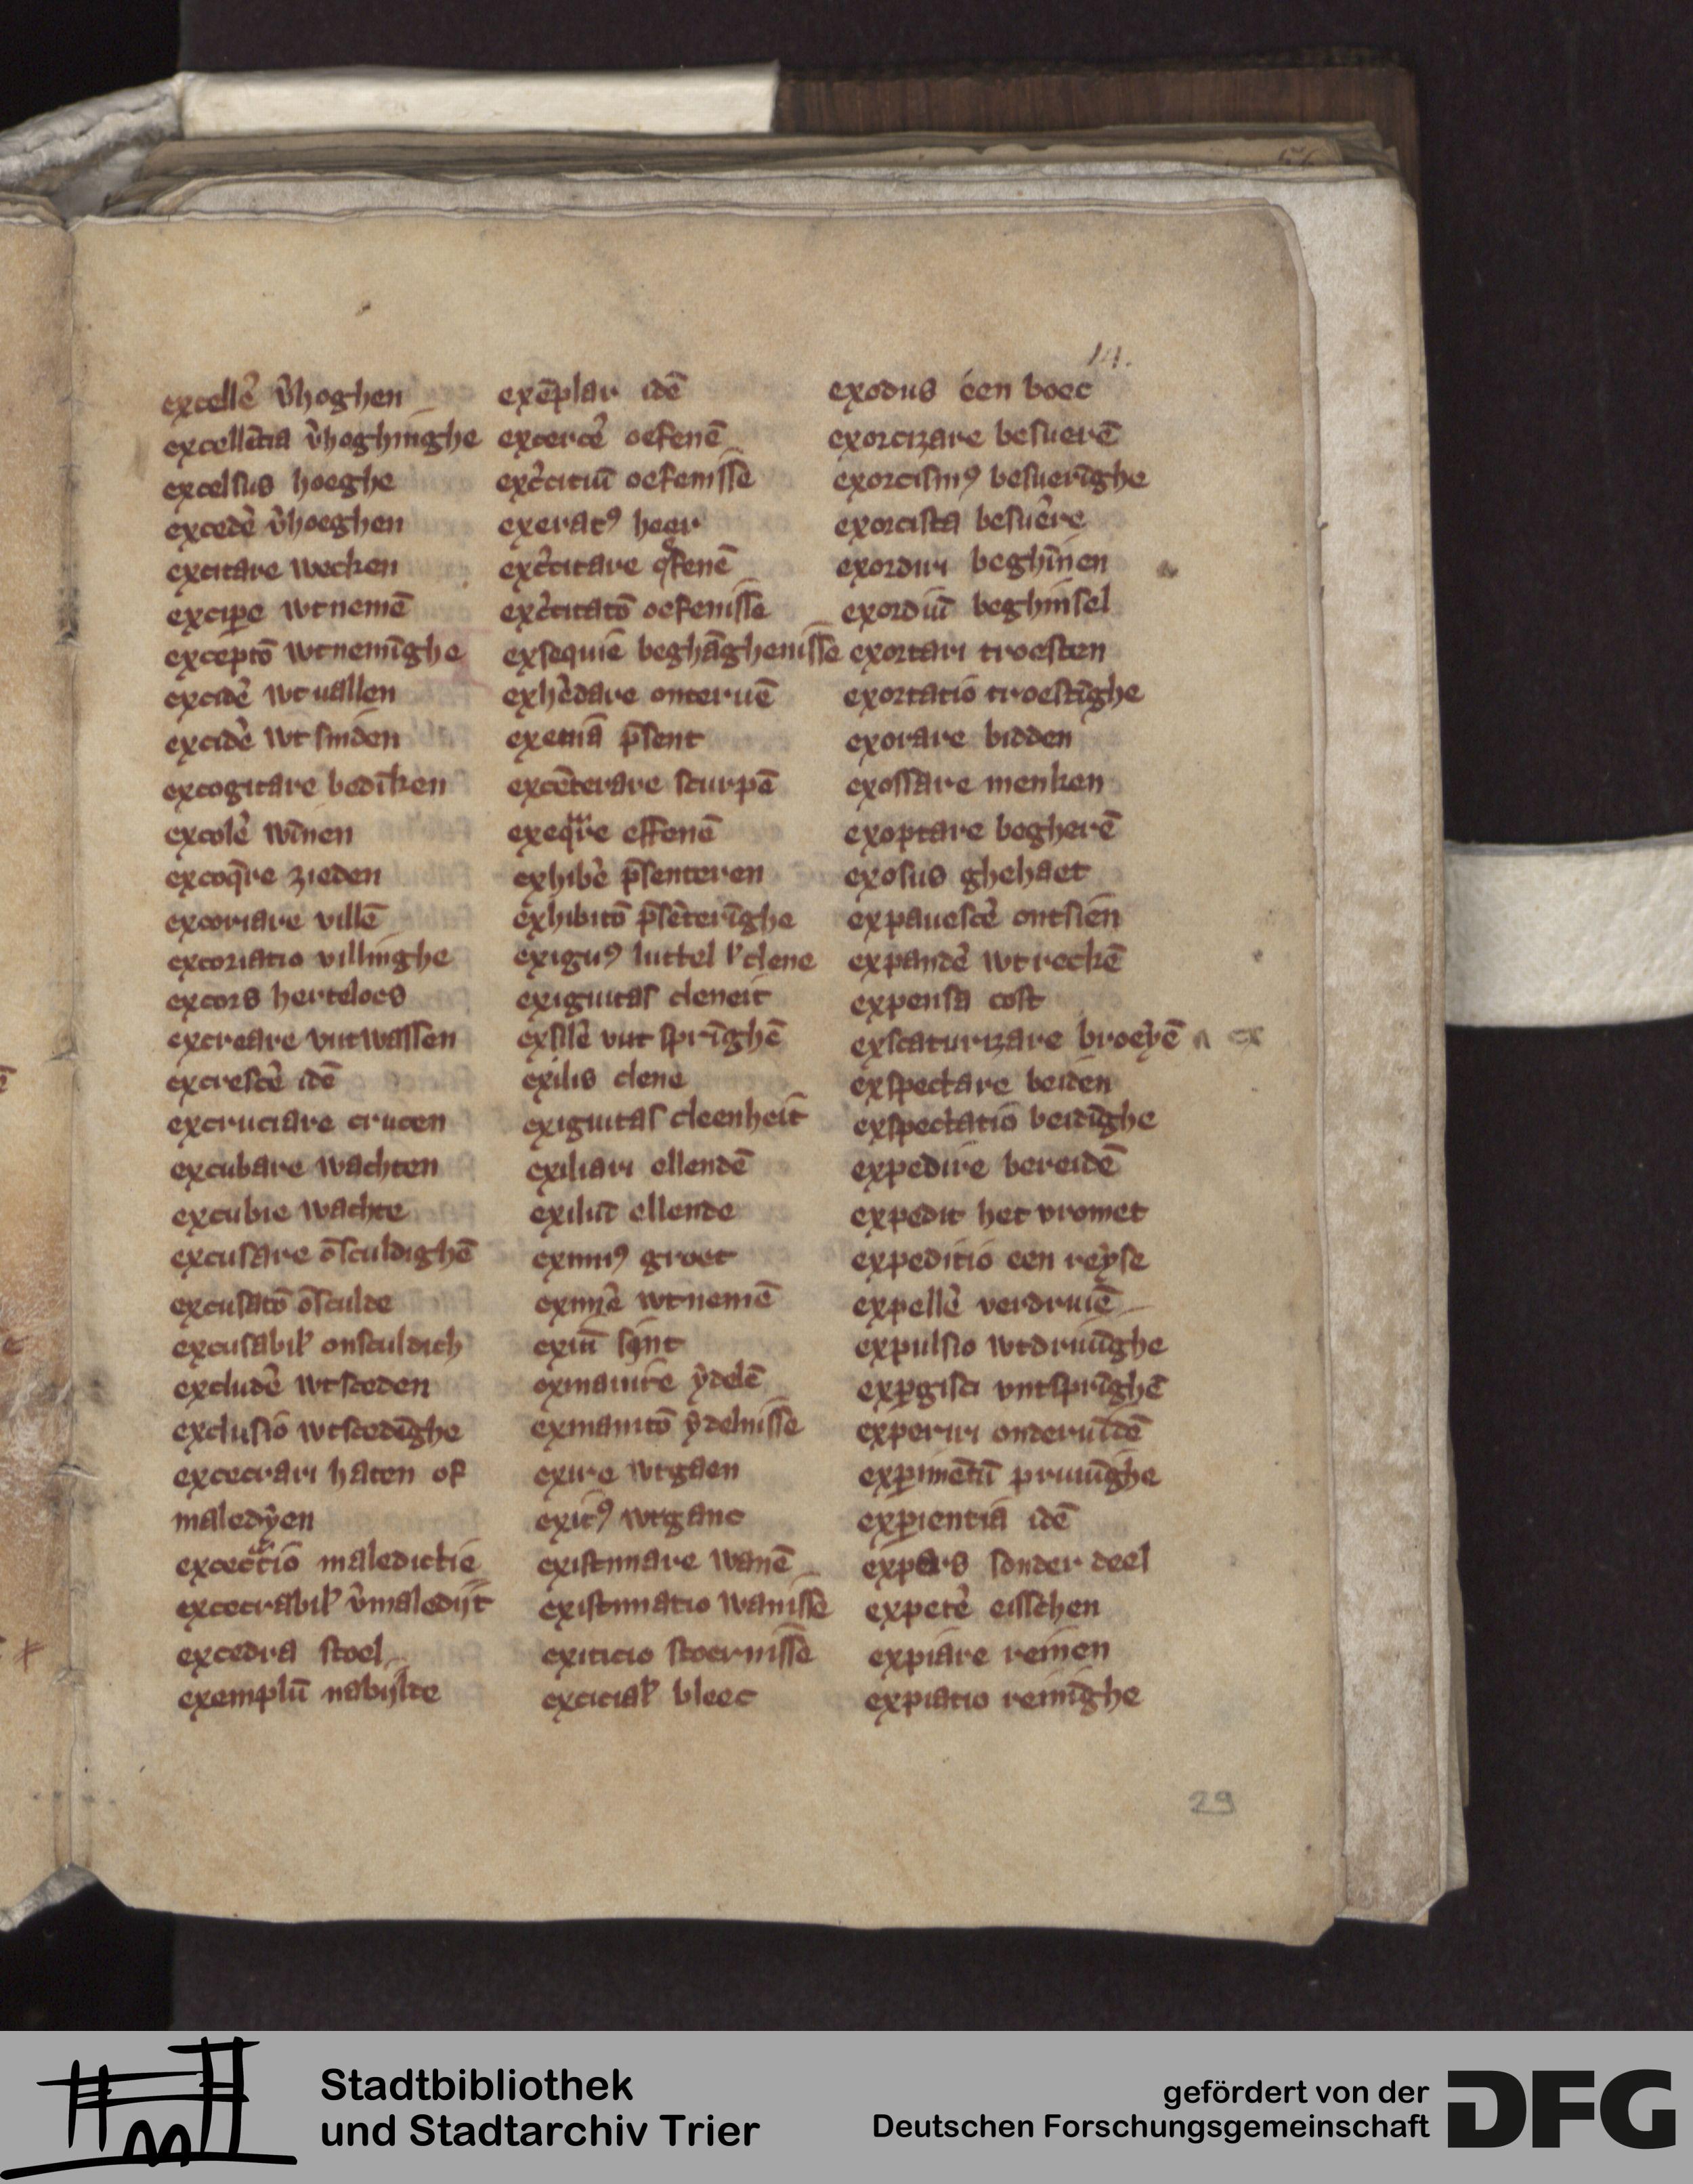 14.
excellẽ v̉hoghen
excellẽtia v̉hoghinghe
excelsus hoeghe
excedẽ v̉hoeghen
excitare wecken
excipe wtnemẽ
exceptõ wtnemĩghe
excidẽ wtuallen
excidẽ wtsniden
excogitare bedĩken
excolẽ wĩnen
excoq̃re zieden
excoriare villẽ
excoriatio villinghe
excors herteloes
excreare vutwassen
excrescẽ idẽ
excruciare crucen
excubare wachten
excubie wachte
excusare õsculdighẽ
excusatõ õsculde
excusabil̉ onsculdich
excludẽ wtsceden
exclusio wtscedĩghe
excecrari haten of
maledyen
excecr̃tio maledictie
excecrabil̉ v̉maledijt
excedra stoel
exemplũ nabijlte
exẽplar idẽ
excercẽ oefenẽ
exc̉citiũ oefenisse
exeratꝰ heer
exc̉citare oefenẽ
exc̉citatõ oefenisse
exsequie beghãghenisse
exhẽdare onteruẽ
exeniã p̃sent
excẽterare scurpẽ
exeqre effenẽ
exhibẽ p̃senteren
exhibitõ p̃sẽterĩghe
exiguꝰ luttel l̉ clene
exiguitas cleneit
exsilẽ vut sprĩghẽ
exilis clene
exiguitas cleenheit
exiliari ellendẽ
exiliũ ellende
eximiꝰ groet
eximẽ wtnemẽ
exinanire ydelẽ
exinanitõ ydelnisse
exire wtgaen
exitꝰ wtganc
existimare wanẽ
existimatio wanisse
exiticio stoernisse
excicial̉ bleec
exodus een boec
exorcizare besuerẽ
exorcismꝰ besuerĩghe
exorcista besuere
exordiri beghĩnen
exordiũ beghinsel
exortari troesten
exortatio troestĩghe
exorare bidden
exossare menken
exoptare begherẽ
exosus ghehaet
expauescẽ ontsien
expandẽ wtreckẽ
expensa cost
exscaturizare broeyẽ
exspectare beiden
exspectatio beidĩghe
expedire bereidẽ
expedit het vromet
expeditio een reyse
expellẽ verdriuẽ
expulsio wtdriuĩghe
expgisci vntsprĩghẽ
experiri onderuĩdẽ
expimẽtũ pruuĩghe
expientia idẽ
expers sonder deel
expetẽ eisschen
expiare reinen
expiatio reinĩghe
29
Stadtbibliothek
und Stadtarchiv Trier
gefördert von der
Deutschen Forschungsgemeinschaft
DFG